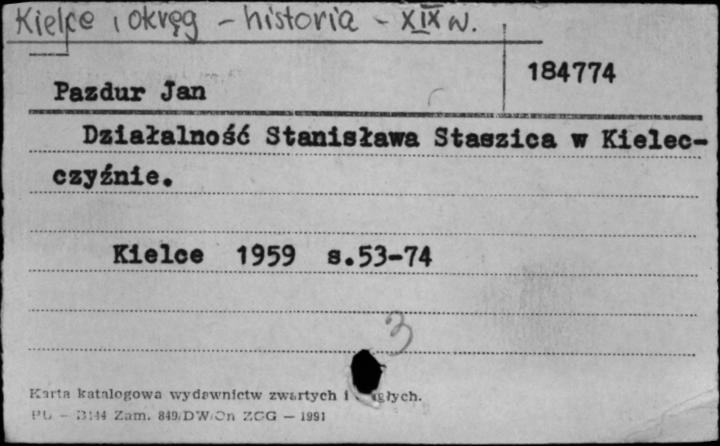 Kielce i okręg - historia - XIX w.
184774
Pazdur Jan
Działalność Stanisława Staszica w Kielec-
czyźnie.
Kielce 1959 s.53-74
3
Karta katalogowa wydawnictw zwartych i
PU - Zam. 849/DW/On ZCG - 1991